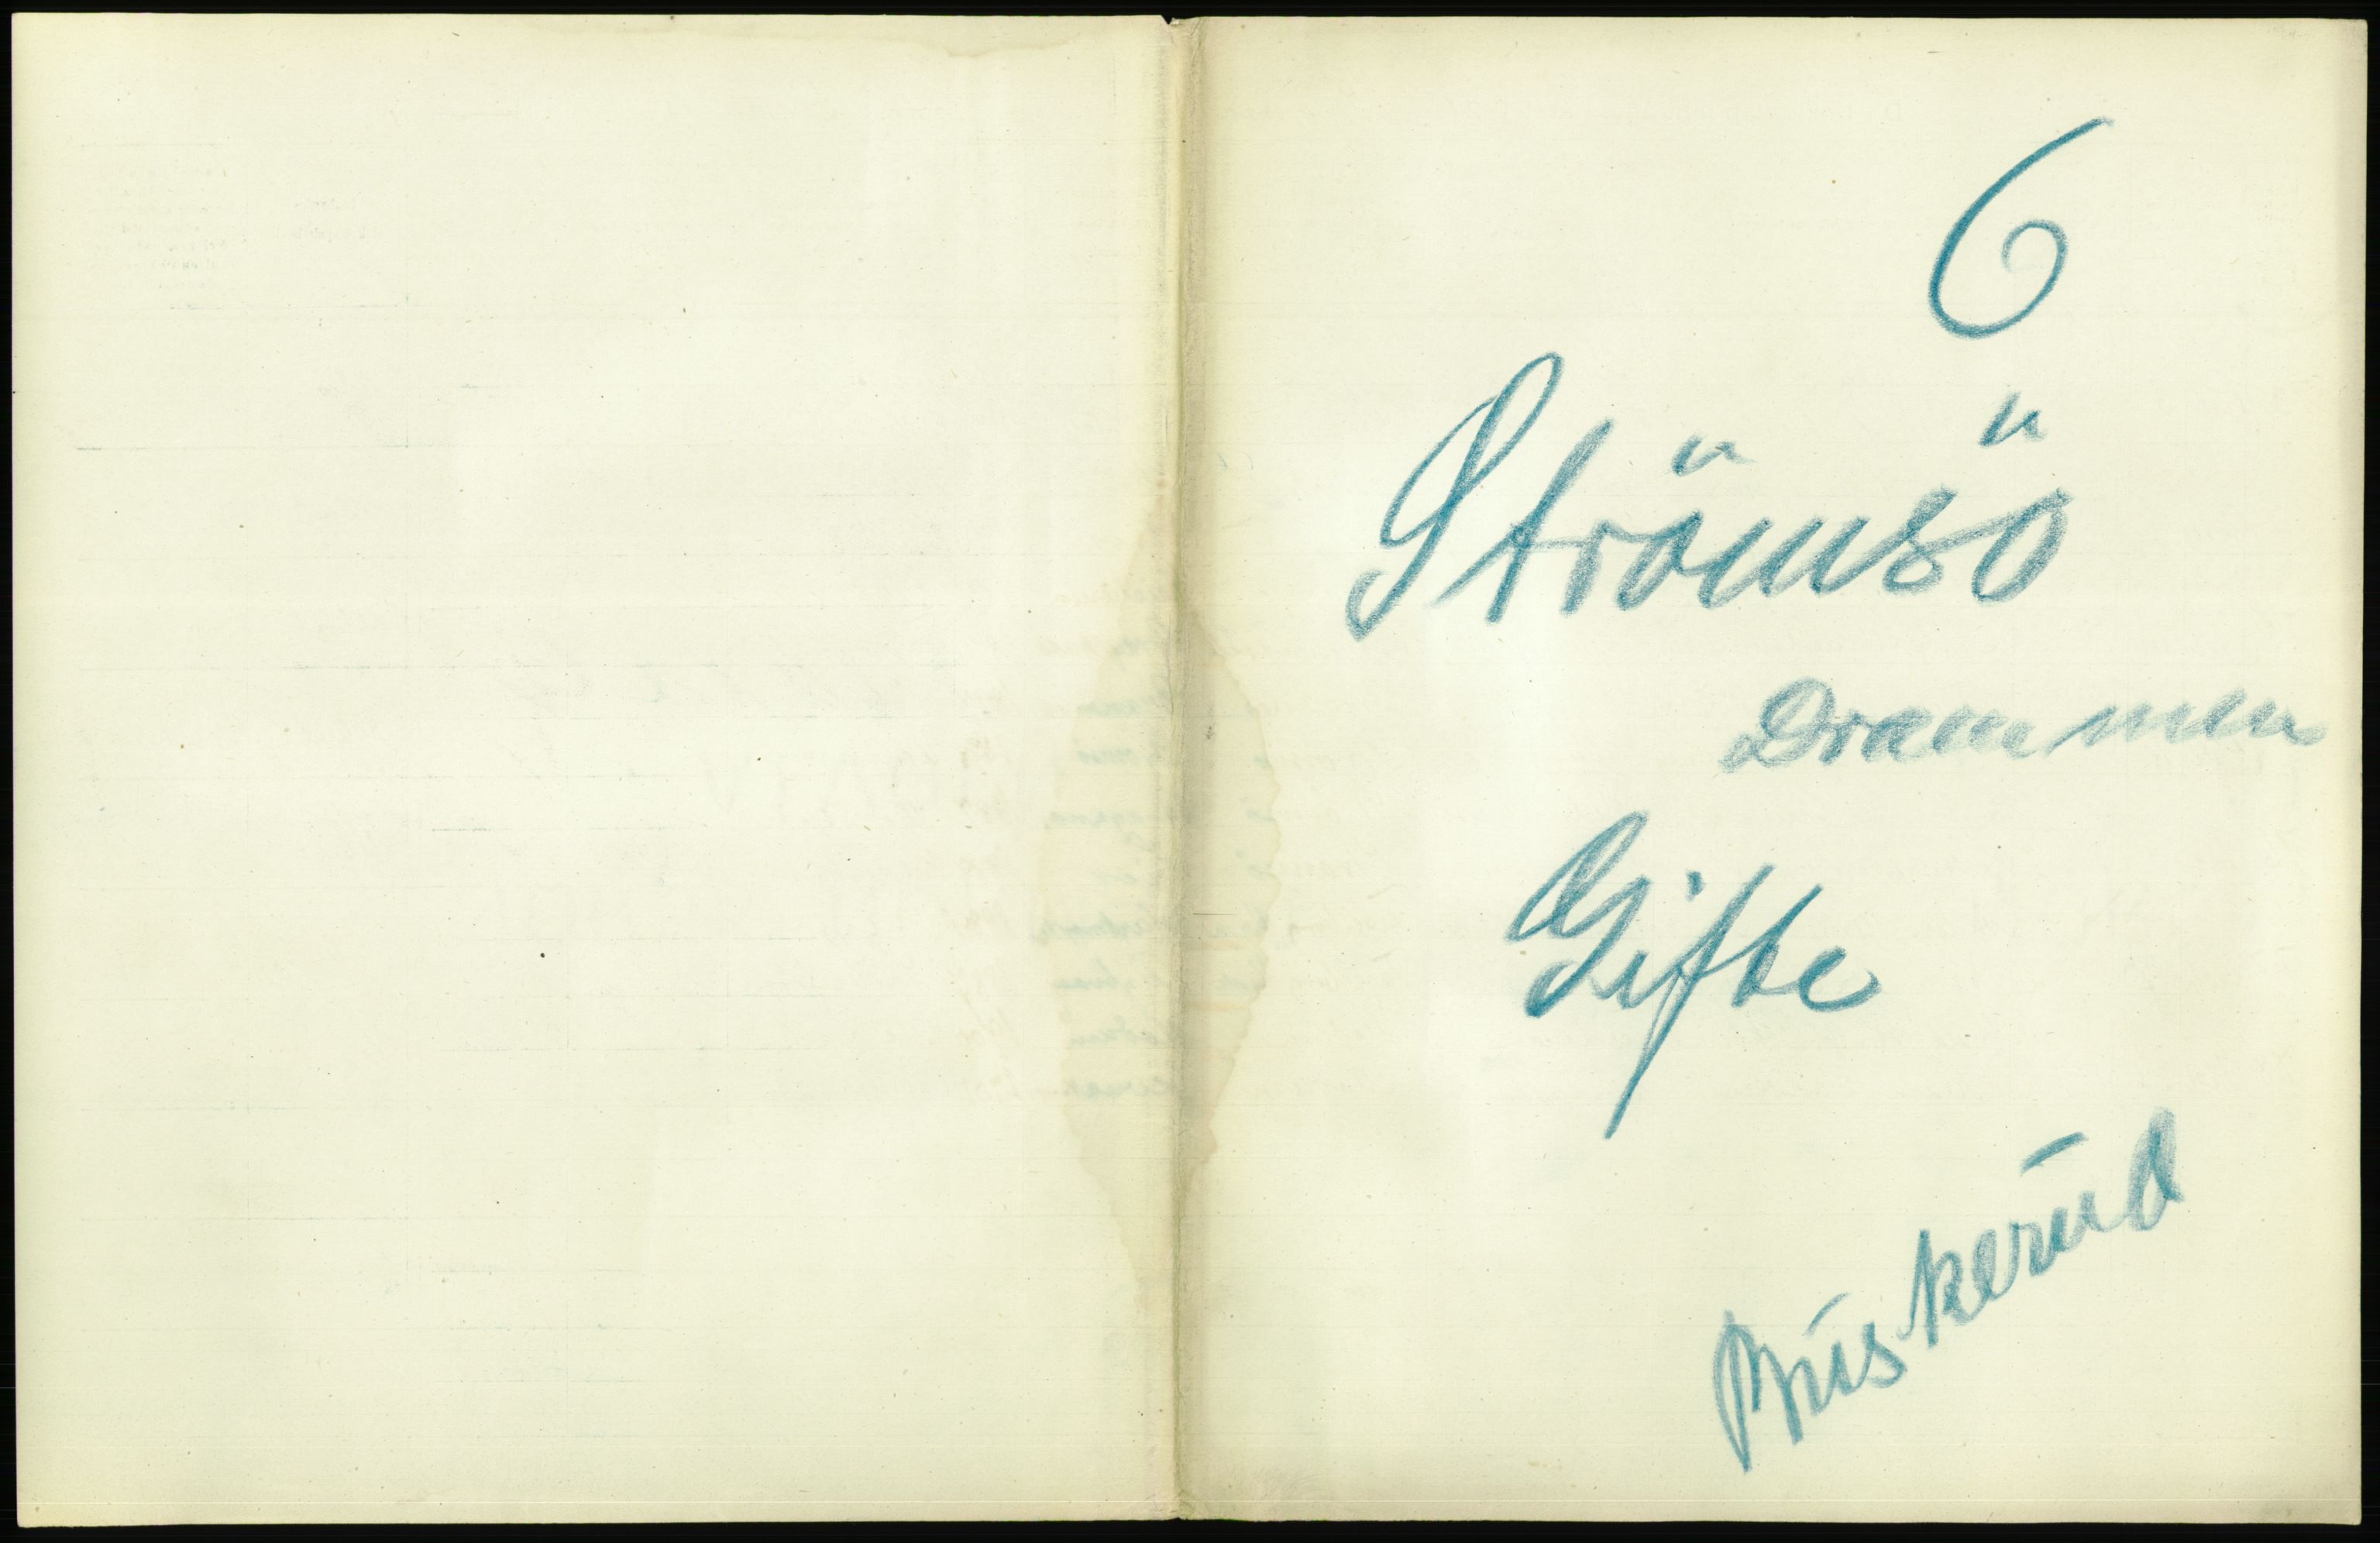 6
Strömsö
Drammen
Gifte
Buskerud